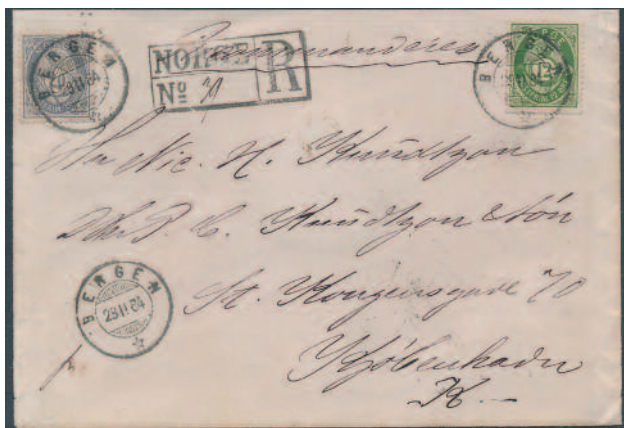 BERGEN
28 II 84
NORGE R
Nº
Recommanderes
BERGEN
12
Hr Nic. H. Knudtzon
C. Knudtzon & Søn
St. Kongensgade 70
Kjøbenhavn
K.
BERGEN
28 II 84